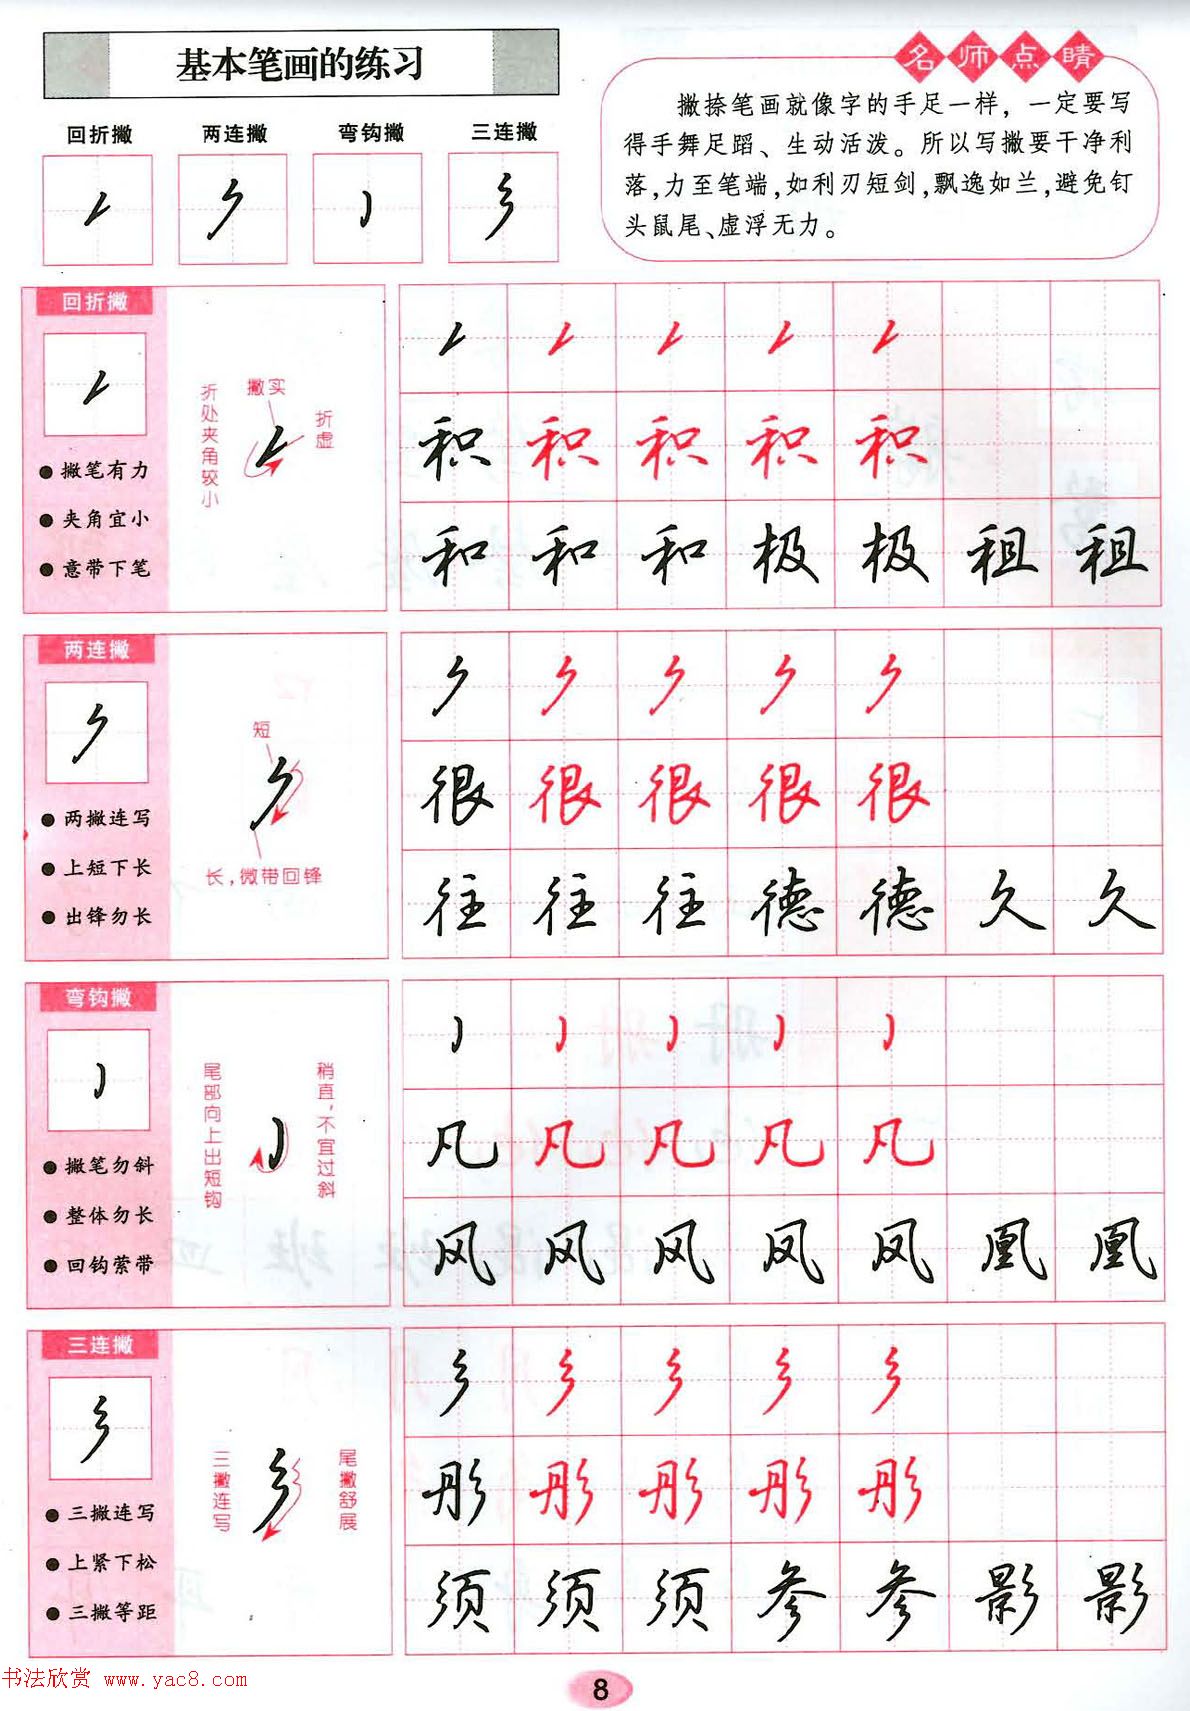 基本笔画的练习
名师点睛
撇捺笔画就像字的手足一样，一定要写
得手舞足蹈、生动活泼。所以写撇要干净利
落,力至笔端,如利刃短剑,飘逸如兰,避免钉
头鼠尾、虚浮无力。
回折撇 两连撇 弯钩撇 三连撇
回折撇
撇笔有力
夹角宜小
意带下笔
折处夹角较小
撇实
折虚
积 积 积 积 积
和 和 和 极 极 租 租
两连撇
两撇连写
上短下长
出锋勿长
短
长,微带回锋
很 很 很 很 很
往 往 往 德 德 久 久
弯钩撇
撇笔勿斜
整体勿长
回钩萦带
尾部向上出短钩
稍直,不宜过斜
凡 凡 凡 凡 凡
风 风 风 凤 凤 凰 凰
三连撇
三撇连写
上紧下松
三撇等距
三撇连写
尾撇舒展
彤 彤 彤 彤 彤
须 须 须 参 参 影 影
书法欣赏 www.yac8.com
8